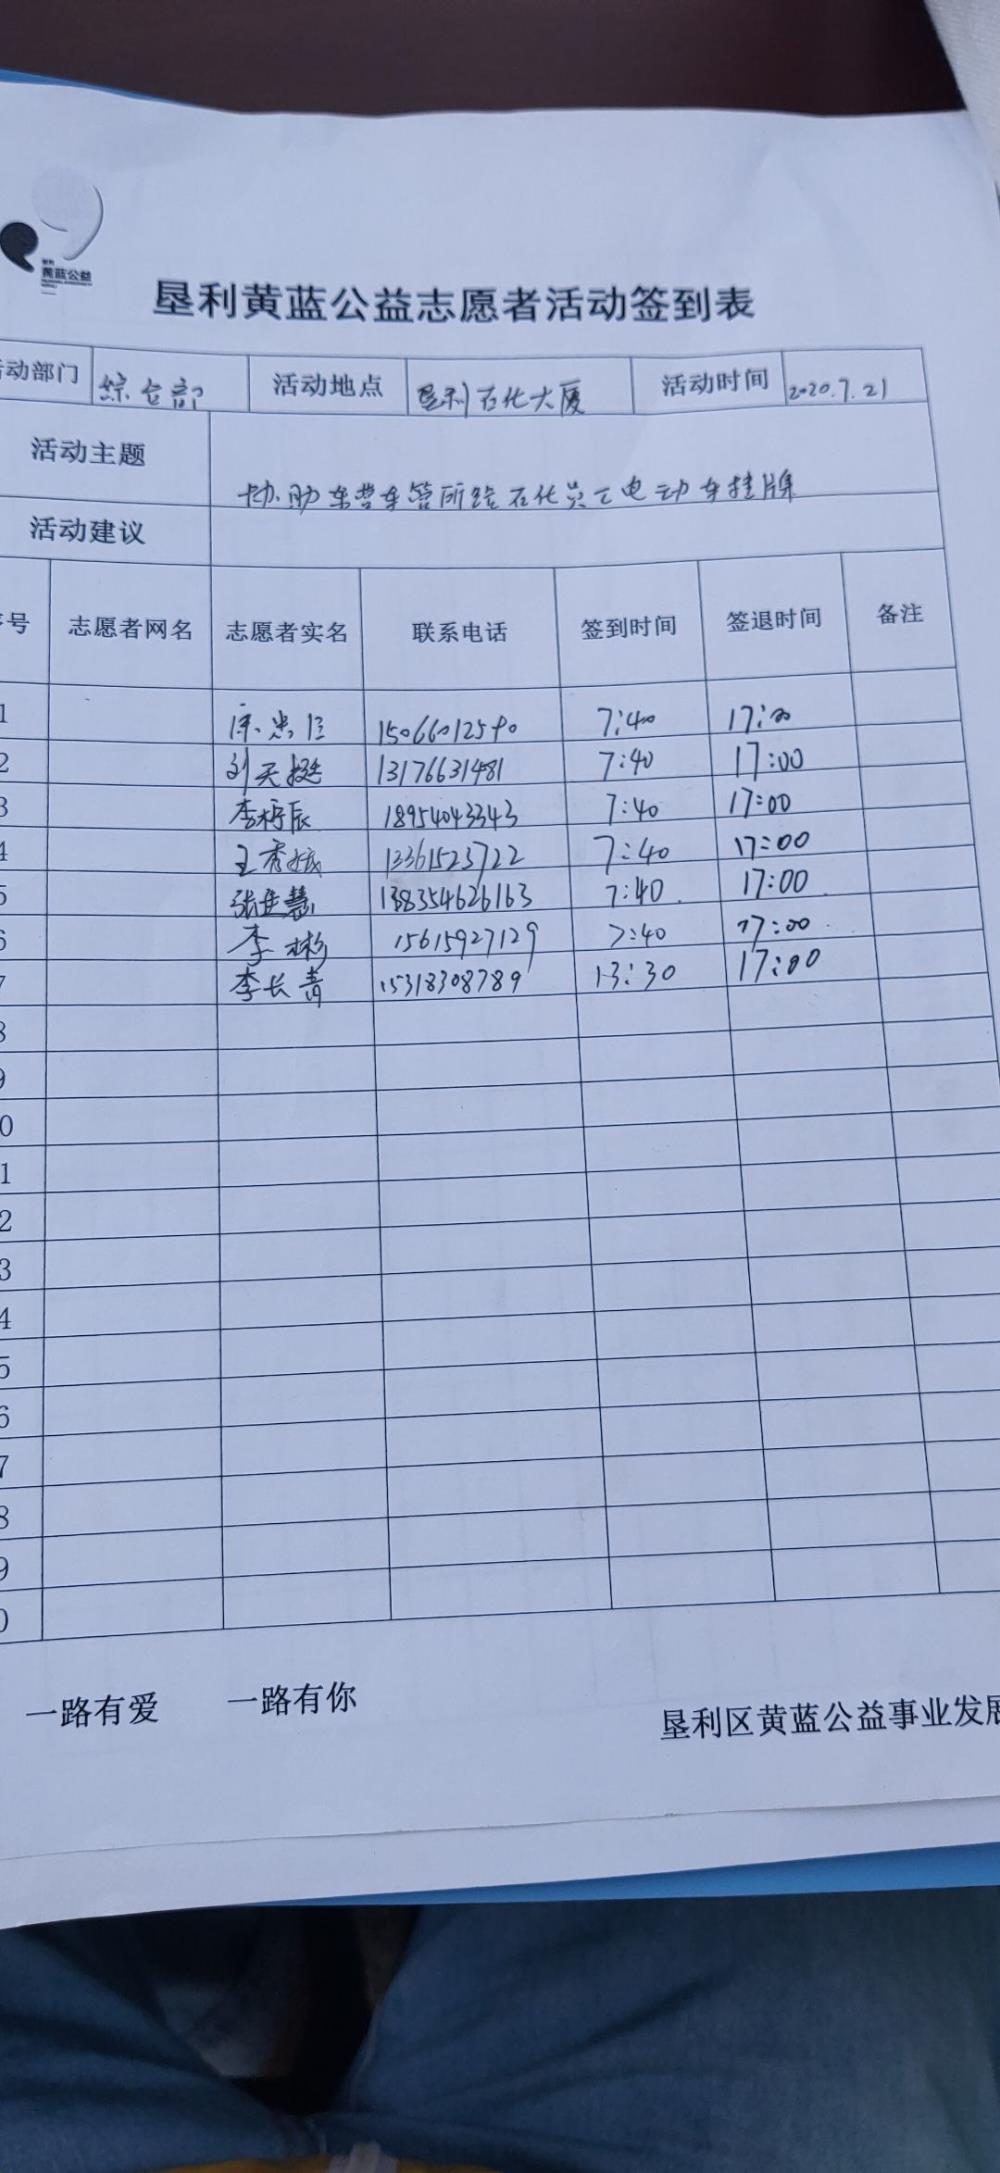 黄蓝公益
垦利黄蓝公益志愿者活动签到表
动部门 综合部 活动地点 垦利石化大厦 活动时间 2020.7.21
活动主题 协助东营车管所给石化员工电动车挂牌
活动建议
号 志愿者网名 志愿者实名 联系电话 签到时间 签退时间 备注
1 15066012590 7:40 17:00
2 刘天挺 13176631481 7:40 17:00
3 李梓辰 18954043343 7:40 17:00
4 王秀 13361523722 7:40 17:00
5 张佳慧 138354626163 7:40 17:00
6 李彬 15615927129 7:40 17:00
7 李长青 15318308789 13:30 17:00
8
9
0
1
2
3
4
5
6
7
8
9
0
一路有爱 一路有你
垦利区黄蓝公益事业发展